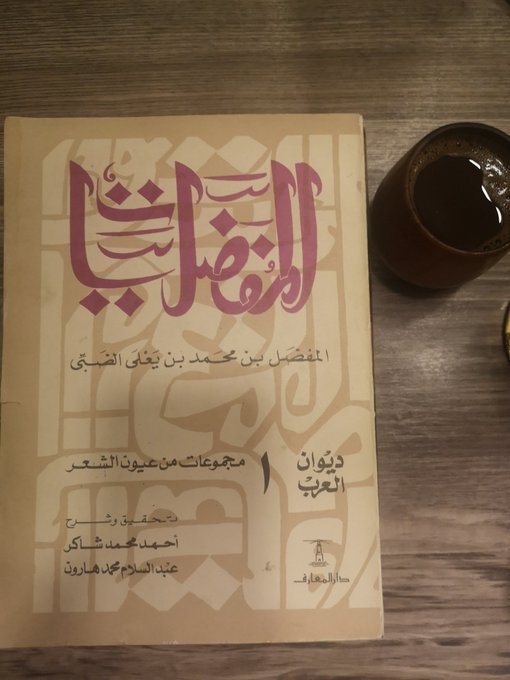 المفضليات
المفضل بن محمد بن يعلى الضبّى
ديوان العرب
١
مجموعات من عيون الشعر
تحقيق وشرح
أحمد محمد شاكر
عبد السلام محمد هارون
دار المعارف